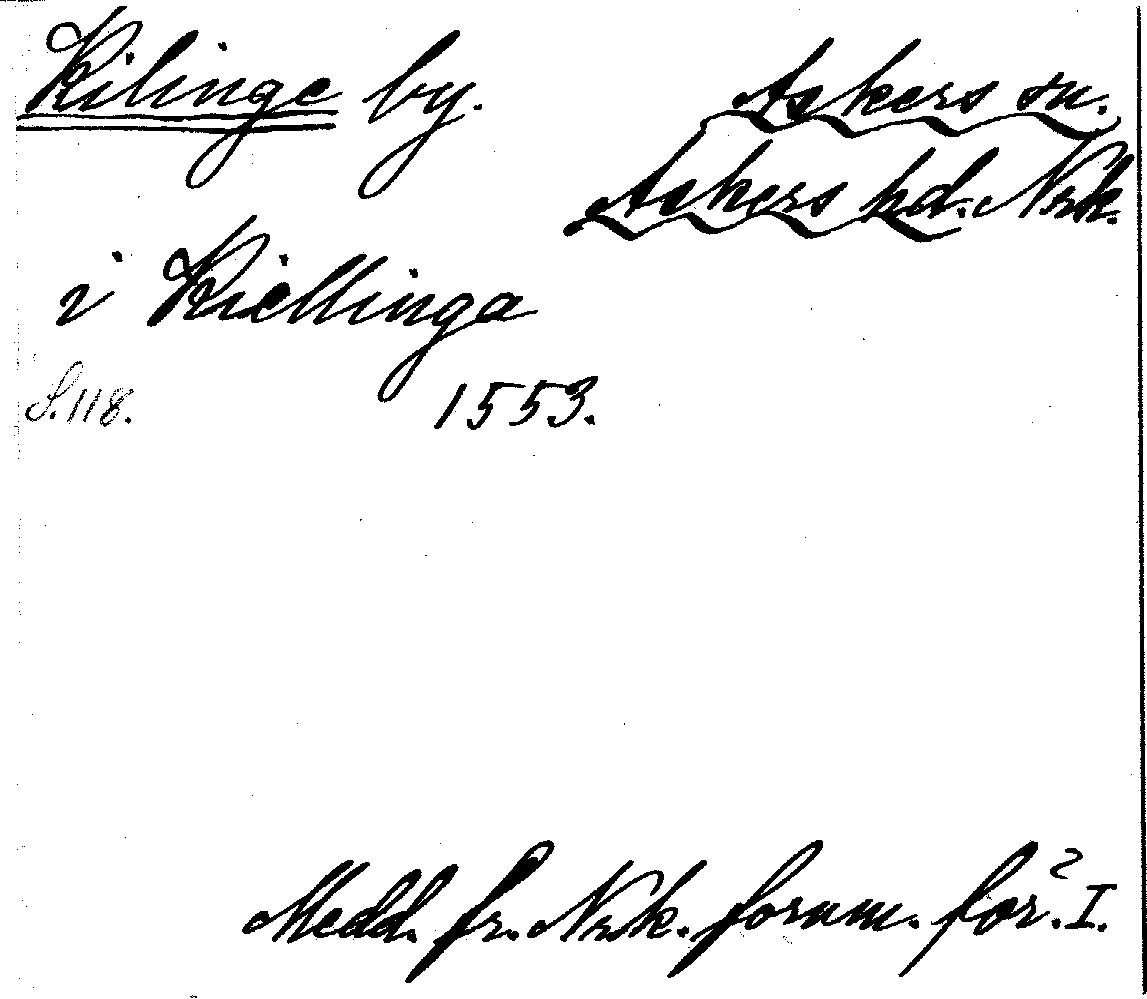 Kilinge by.
Askers sn.
Askers hd. Nrk.
i Kiellinga
S. 118. 1553.
Medd. fr. Nrk. fornm. för. I.